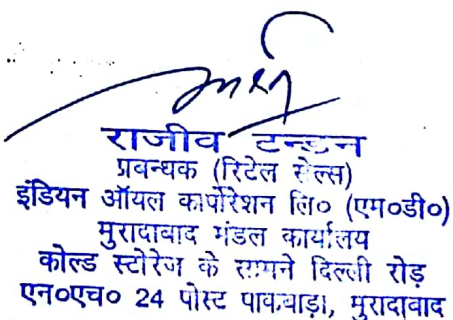 राजीव टन्डन
प्रबन्धक (रिटेल सेल्स)
इंडियन ऑयल कार्पोरेशन लि० (एम०डी०)
मुरादाबाद मंडल कार्यालय
कोल्ड स्टोरेज के सामने दिल्ली रोड़
एन०एच० 24 पोस्ट पाकबाड़ा, मुरादाबाद